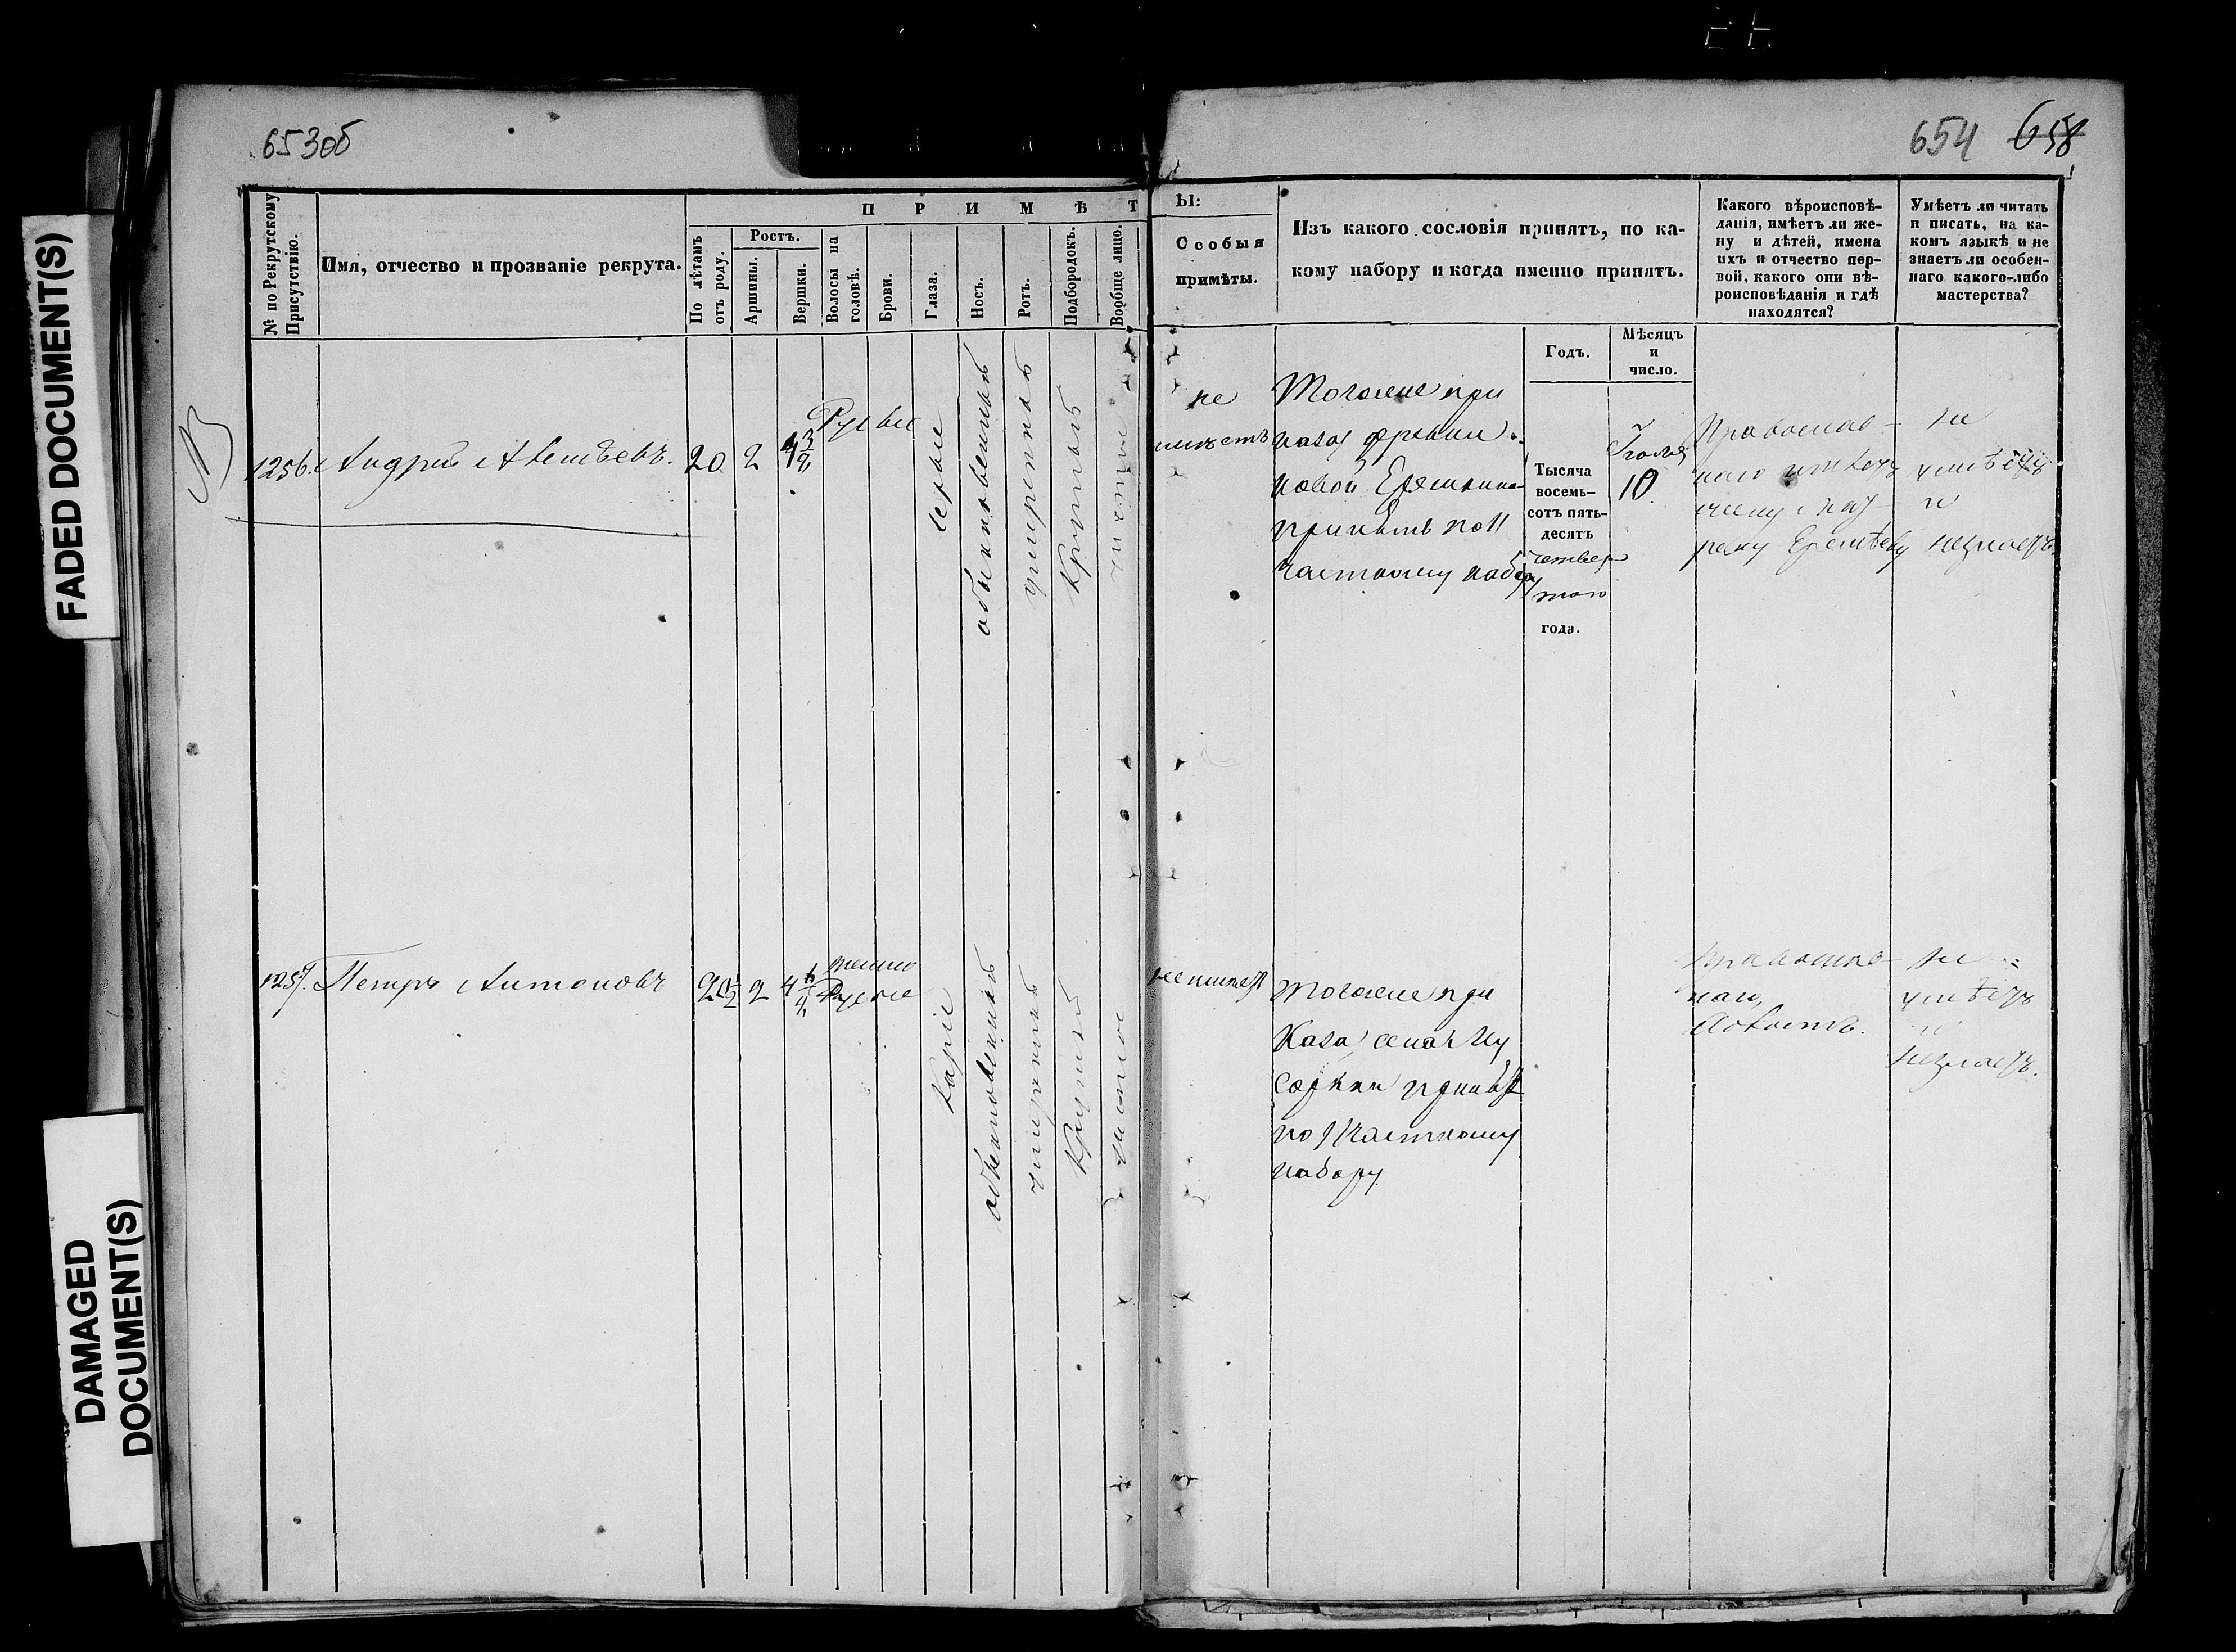 FADED DOCUMENT(S)
DAMAGED
DOCUMENT(S)
653об
654 658
№ по Рекрутскому
Присутствію.
Имя, отчество и прозваніе рекрута.
П Р И М Ѣ Т
По лѣтамъ
отъ роду.
Ростъ.
Аршины.
Вершки.
Волосы на
головѣ.
Брови.
Глаза.
Носъ.
Ротъ.
Подбородокъ.
Вообще лицо.
Ы:
Особыя
примѣты.
Изъ какого сословія принятъ, по ка-
кому набору и когда именно принятъ.
Какого вѣроисповѣ-
данія, имѣетъ ли же-
ну и дѣтей, имена
ихъ и отчество пер-
вой, какого они вѣ-
роисповѣданія и гдѣ
находятся?
Умѣетъ ли читать
и писать, на ка-
комъ языкѣ и не
знаетъ ли особен-
наго какого-либо
мастерства?
Годъ.
Мѣсяцъ
и
число.
1256. Андрей
20 2
Русые
серые
обыкновенный
умеренный
Круглый
чистое
не
имѣетъ
Тогоже при
каза
новой
принятъ по 11
частному набору
Тысяча
восемь-
сотъ пять-
десятъ
четвер
того
года.
Іюля
10.
Православ-
наго
не
умѣетъ
и
незнаетъ.
1257. Петръ Антоновъ
20 1/2 2 4
темно
Русые
Каріе
обыкновенный
умеренный
Круглый
чистое
неимѣетъ
тогоже при
Каза
принятъ
по 11 частному
набору
Православ
наго,
холостъ.
не
умѣетъ
и
незнаетъ.